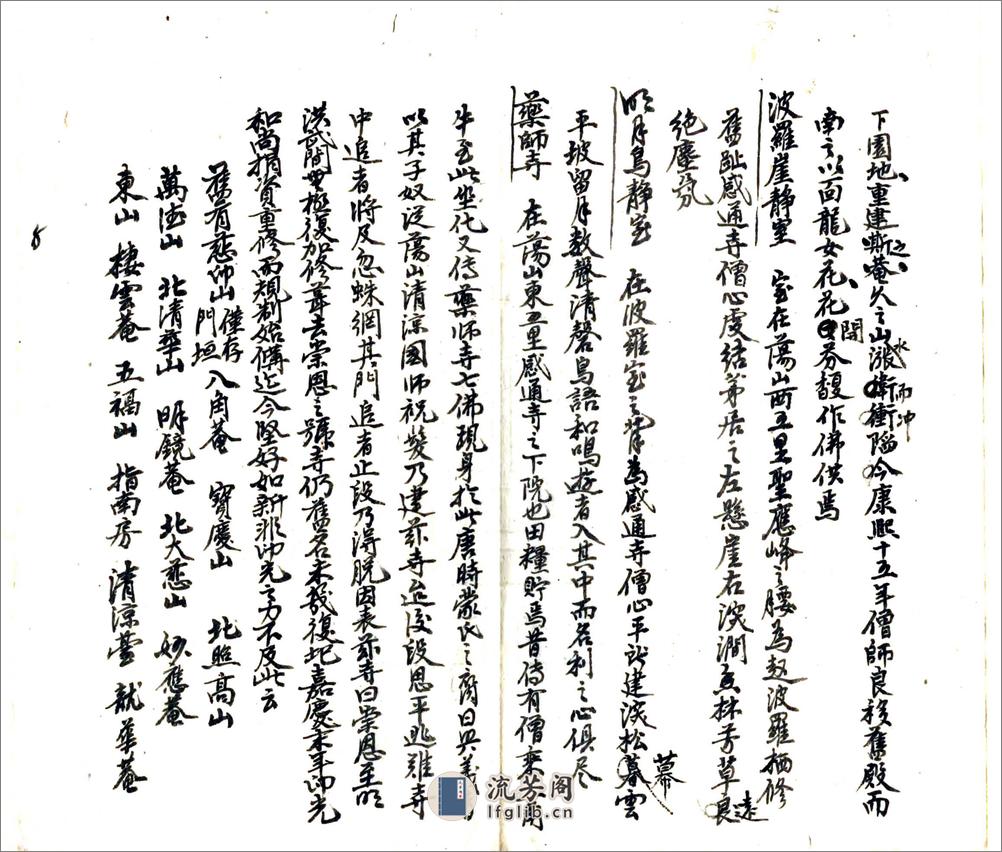 下園地重建斯之菴久之山漲水而沖衝陷今康熙十五年僧師良移舊殿而
南之以面龍女花、花開芬馥作佛供焉
波羅崖靜室 室在蕩山西五里聖應峰之腰為趙波羅栖修
舊趾感通寺僧心虔結茅居之左懸崖右淡澗長林芳草良遠
絕塵氛
明月島靜室 在波羅室之北為感通寺僧心平所建淡松幕雲
平坡留月数聲清磬鳥語和鳴遊者入其中而名利之心俱尽
藥師寺 在蕩山東五里感通寺之下院也田糧貯焉昔傳有僧乘青
牛至此坐化又傳藥師寺七佛現身於此唐時蒙氏之裔曰興義
以其子奴從蕩山清涼國師祝髮乃建茲寺迨後段思平逃難寺
中追者將及忽蛛網其門追者止段乃得脫因表茲寺曰崇恩至明
洪武間無極復加修葺去崇恩之號寺仍舊名未幾復圮嘉慶末年印光
和尚捐資重修而規制始備迄今堅好如新非印光之力不及此云
舊有慈仰山僅存門垣 八角菴 寶慶山 北照高山
萬法山 北清華山 明鏡菴 北大慈山 妙應菴
東山 棲雲菴 五福山 指南房 清涼臺 龍華菴
流芳阁
lfglib.cn